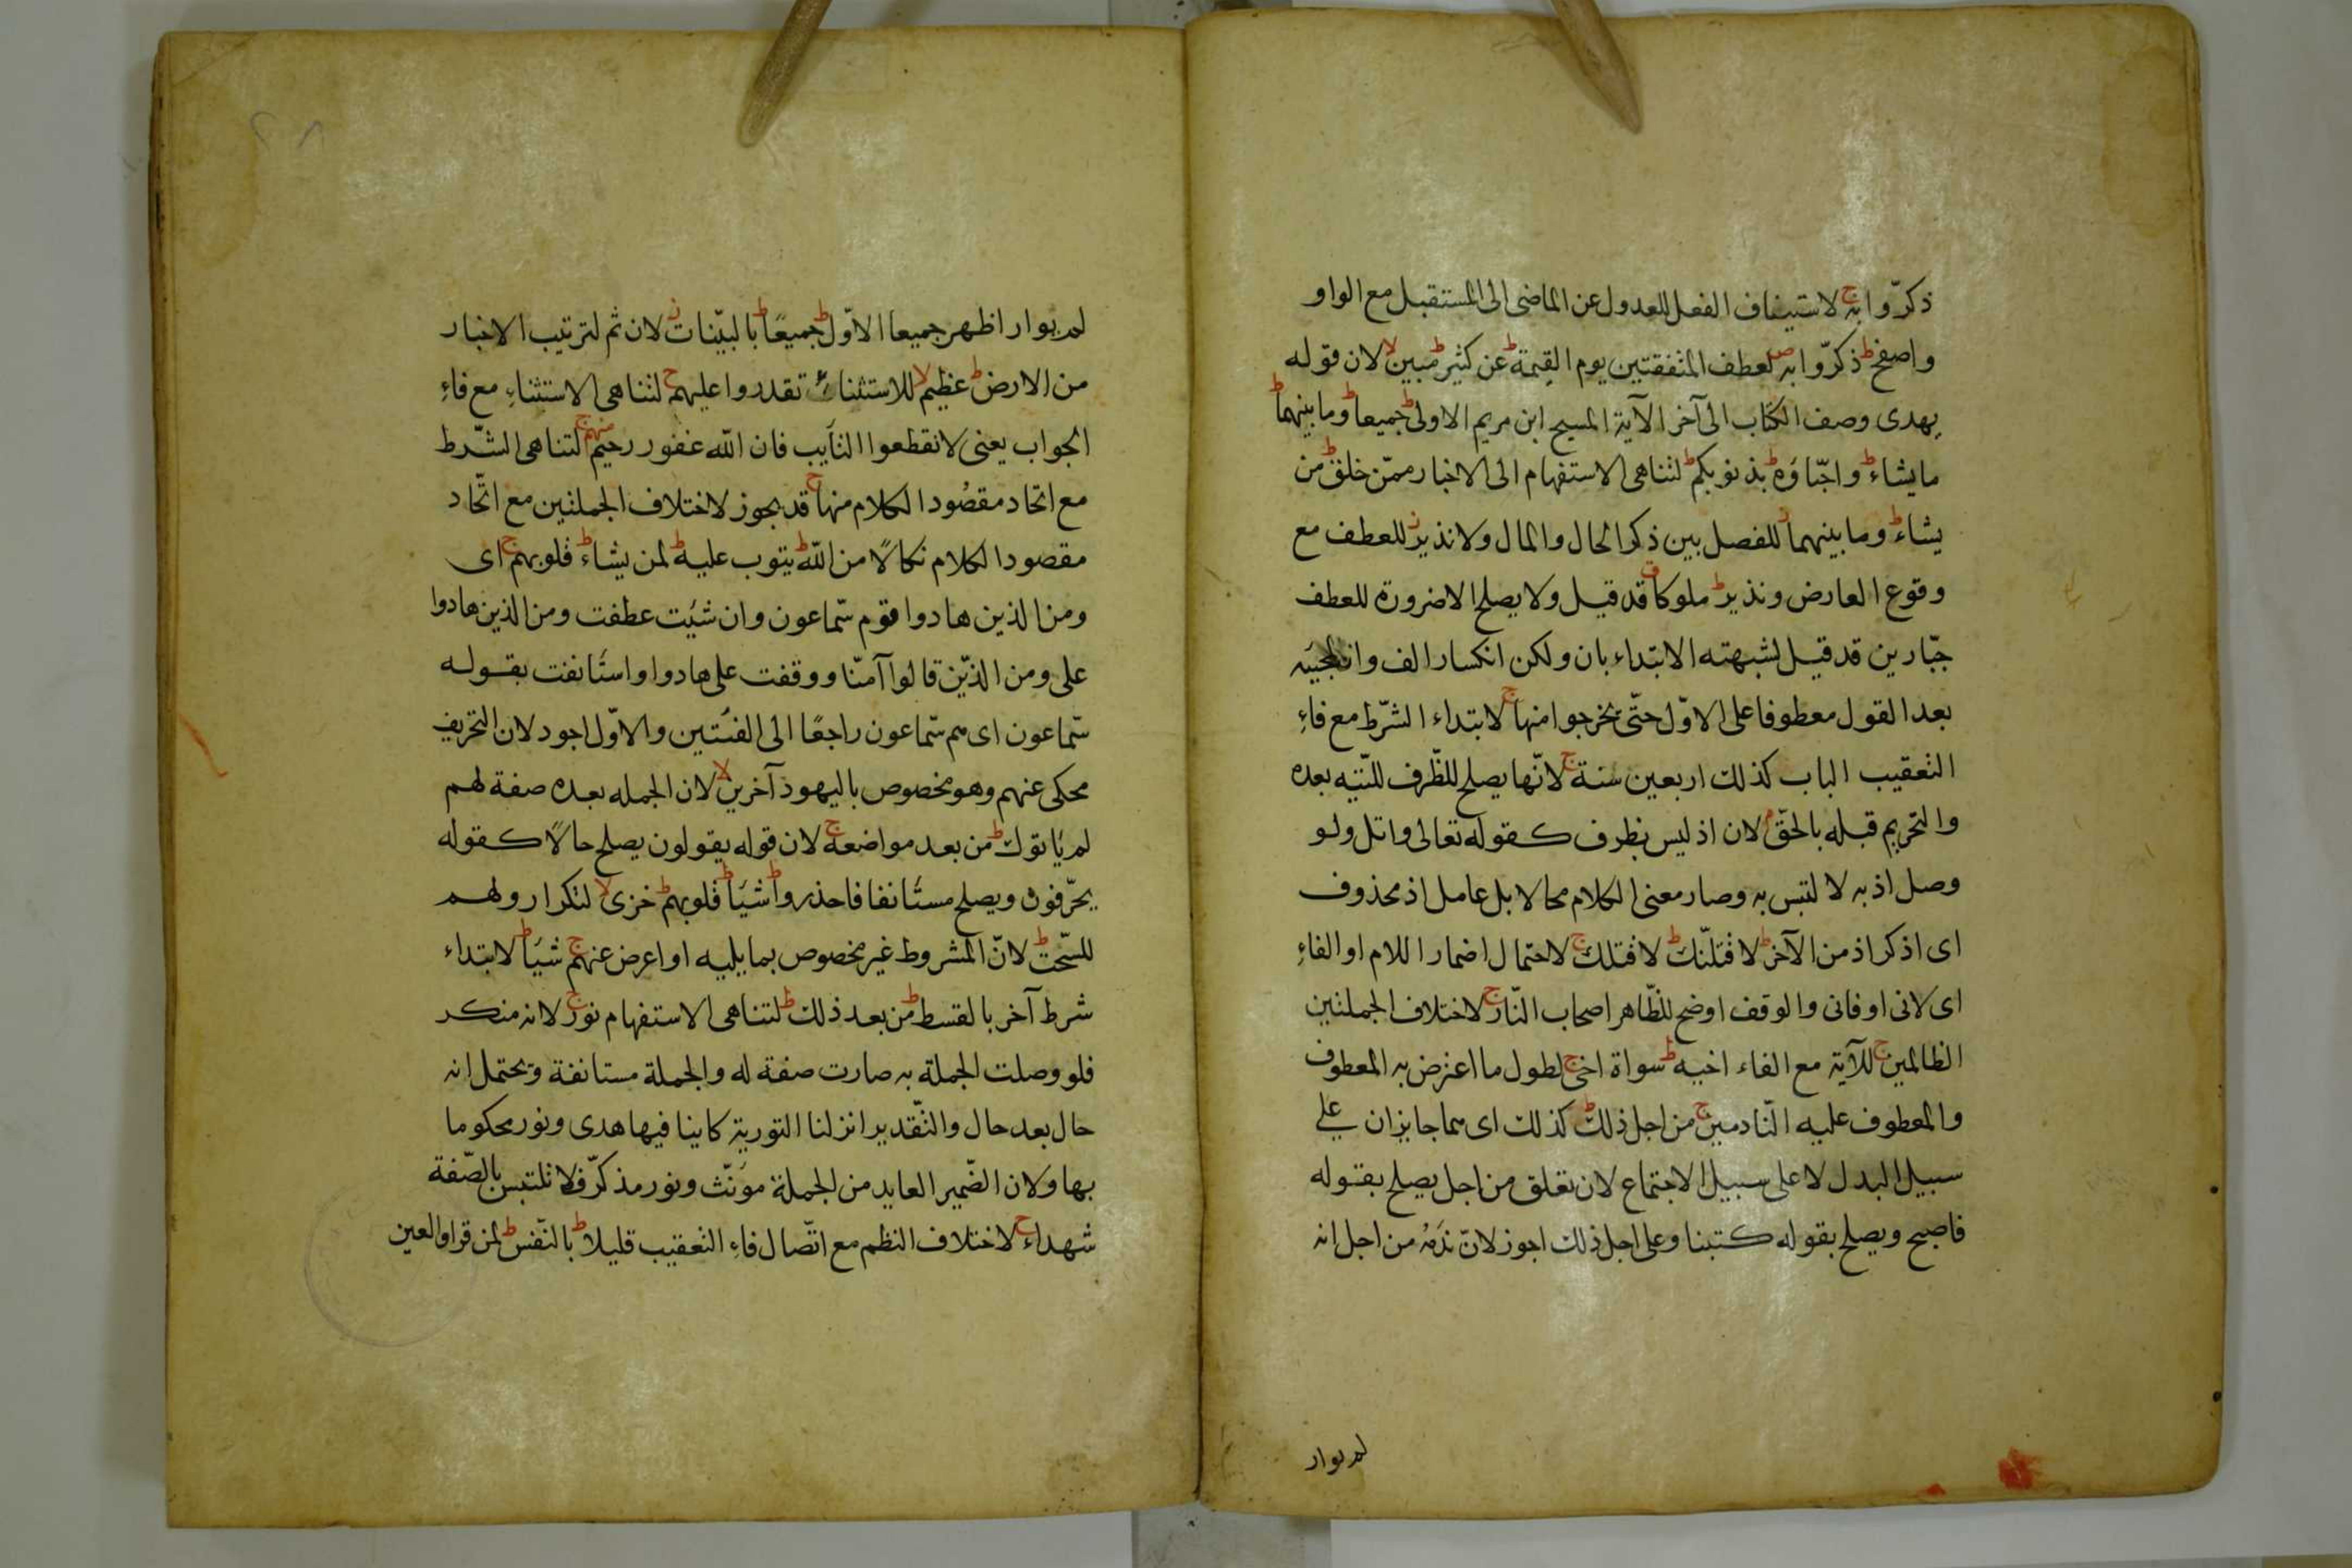 ذكّروا به ج لاستيناف الفعل للعدول عن الماضى الى المستقبل مع الواو
واصفح ط ذكّروا به ص لعطف المتفقتين يوم القيمة ط عن كثير ط مبين لا لان قوله
يهدى وصف الكتاب الى آخر الآية المسيح ابن مريم الاولى ط جميعا ط وما بينهما ط
ما يشاء ط واحبّاؤه ط بذنوبكم ط لتناهى الاستفهام الى الاخبار ممّن خلق ط من
يشاء ط وما بينهما ز للفصل بين ذكر الحال والمال ولا نذير ز للعطف مع
وقوع العارض ونذير ط ملوكا ق قد قيل ولا يصلح الا ضرورة للعطف
جبّارين قد قيل لشبهته الابتداء بان ولكن انكسار الف وان
بعد القول معطوفا على الاوّل حتّى يخرجوا منها ج لابتداء الشّرط مع فاء
التعقيب الباب كذلك اربعين سنة ج لانّها يصلح للظّرف للتّيه بعده
والتحريم قبله بالحقّ م لان اذ ليس بظرف كقوله تعالى واتل ولو
وصل اذ به لا لتبس به وصار معنى الكلام محالا بل عامل اذ محذوف
اى اذكر اذ من الآخر ط لاقتلنّك ط لاقتلك ج لاحتمال اضمار اللام او الفاء
اى لانى او فانى والوقف اوضح للظّاهر اصحاب النّار ج لاختلاف الجملتين
الظالمين ج للآية مع الفاء اخيه ط سواة اخى ج لطول ما اعترض به المعطوف
والمعطوف عليه النّادمين ج من اجل ذلك ط كذلك اى هما جايزان على
سبيل البدل لا على سبيل الاجتماع لان تعلق من اجل يصلح بقوله
فاصبح ويصلح بقوله كتبنا وعلى اجل ذلك اجوز لانّ ندمه من اجل انه
لم يوار
لم يوار اظهر جميعا الاوّل ط جميعًا ط بالبيّنات ز لان ثم لترتيب الاخبار
من الارض ط عظيم لا للاستثناء تقدروا عليهم ج لتناهى الاستثناء مع فاء
الجواب يعنى لا تقطعوا التآيب فان الله غفور رحيم منهم ج لتناهى الشّرط
مع اتحاد مقصود الكلام منها ج قد يجوز لاختلاف الجملتين مع اتّحاد
مقصود الكلام نكالًا من الله ط يتوب عليه ط لمن يشاء ط قلوبهم ج اى
ومن الذين هادوا قوم سمّاعون وان شيت عطفت ومن الذين هادوا
على ومن الذّين قالوا آمنّا ووقفت على هادوا واستانفت بقوله
سمّاعون اى هم سمّاعون راجعًا الى الفئتين والاوّل اجود لان التحريف
محكى عنهم وهو مخصوص باليهود آخرين لا لان الجمله بعده صفة لهم
لم ياتوك ط من بعد مواضعه ج لان قوله يقولون يصلح حالًا كقوله
يحرّفون ويصلح مستانفا فاحذروا ط شيًا ط قلوبهم ط خزى لا لتكرار ولهم
للسّحت ط لانّ المشروط غير مخصوص بما يليه او اعرض عنهم ج شيًا ط لابتداء
شرط آخر بالقسط ط من بعد ذلك ط لتناهى الاستفهام نور ج لانه منكر
فلو وصلت الجملة به صارت صفة له والجملة مستانفة ويحتمل انه
حال بعد حال والتّقدير انزلنا التورية كاينا فيها هدى ونور محكوما
بها ولان الضّمير العايد من الجملة مؤنّث ونور مذكّر فلا تلتبس بالصّفة
شهداء ج لاختلاف النظم مع اتّصال فاء التعقيب قليلا ط بالنّفس ط لمن قرا والعين